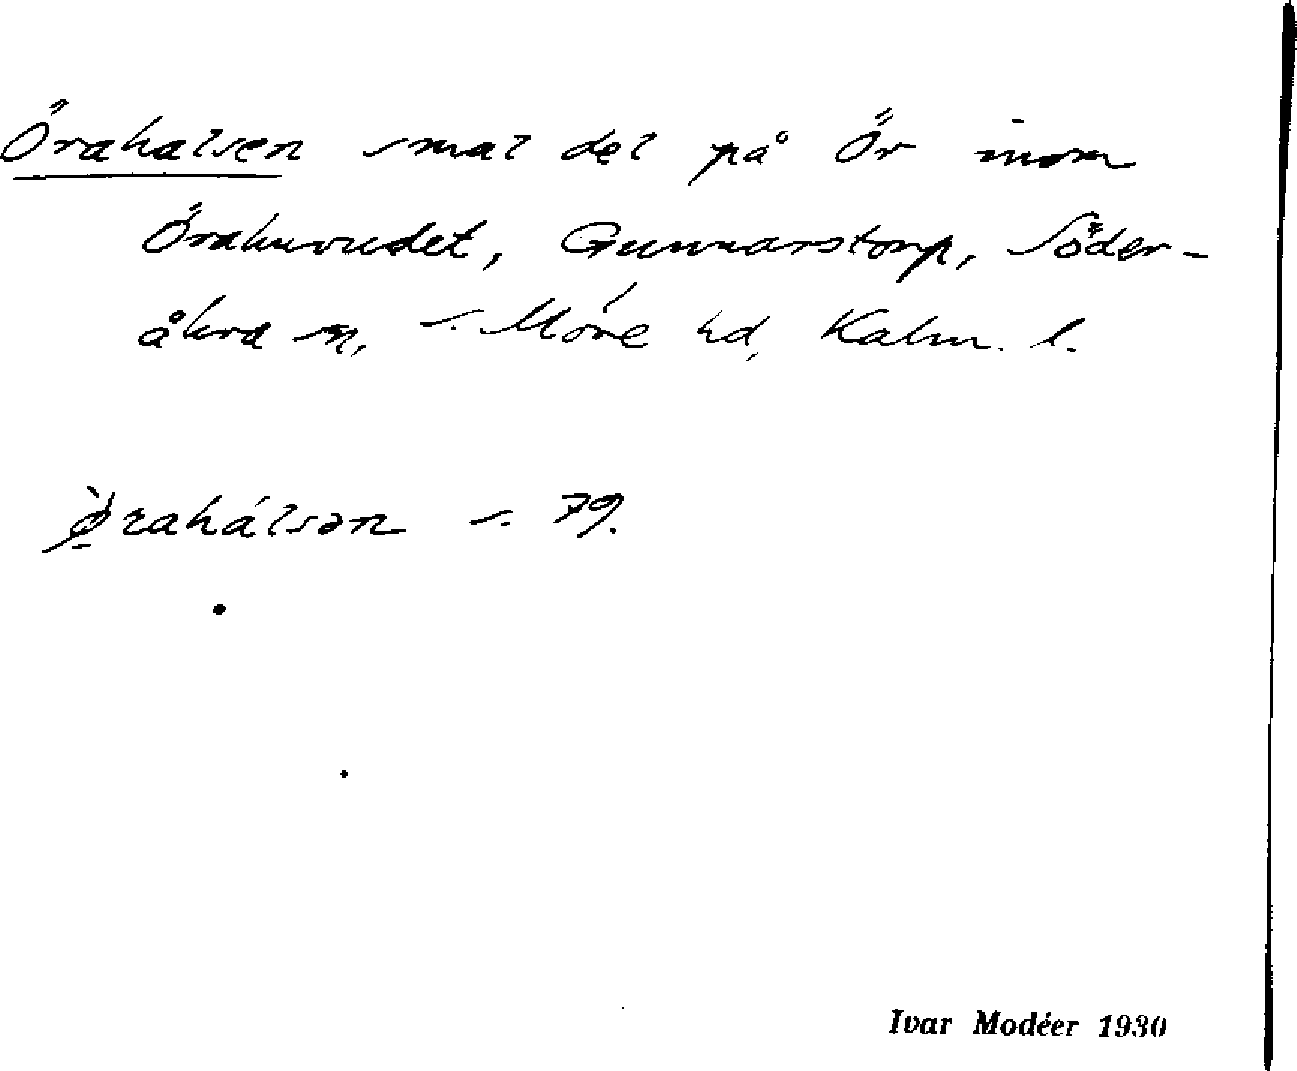 Örahalsen smal del på Ör inom
Örahuvudet, Gunnarstorp, Söder-
åkra sn, s. Möre hd, Kalm. l.
Ø̀rahálsən s. 79.
Ivar Modéer 1930